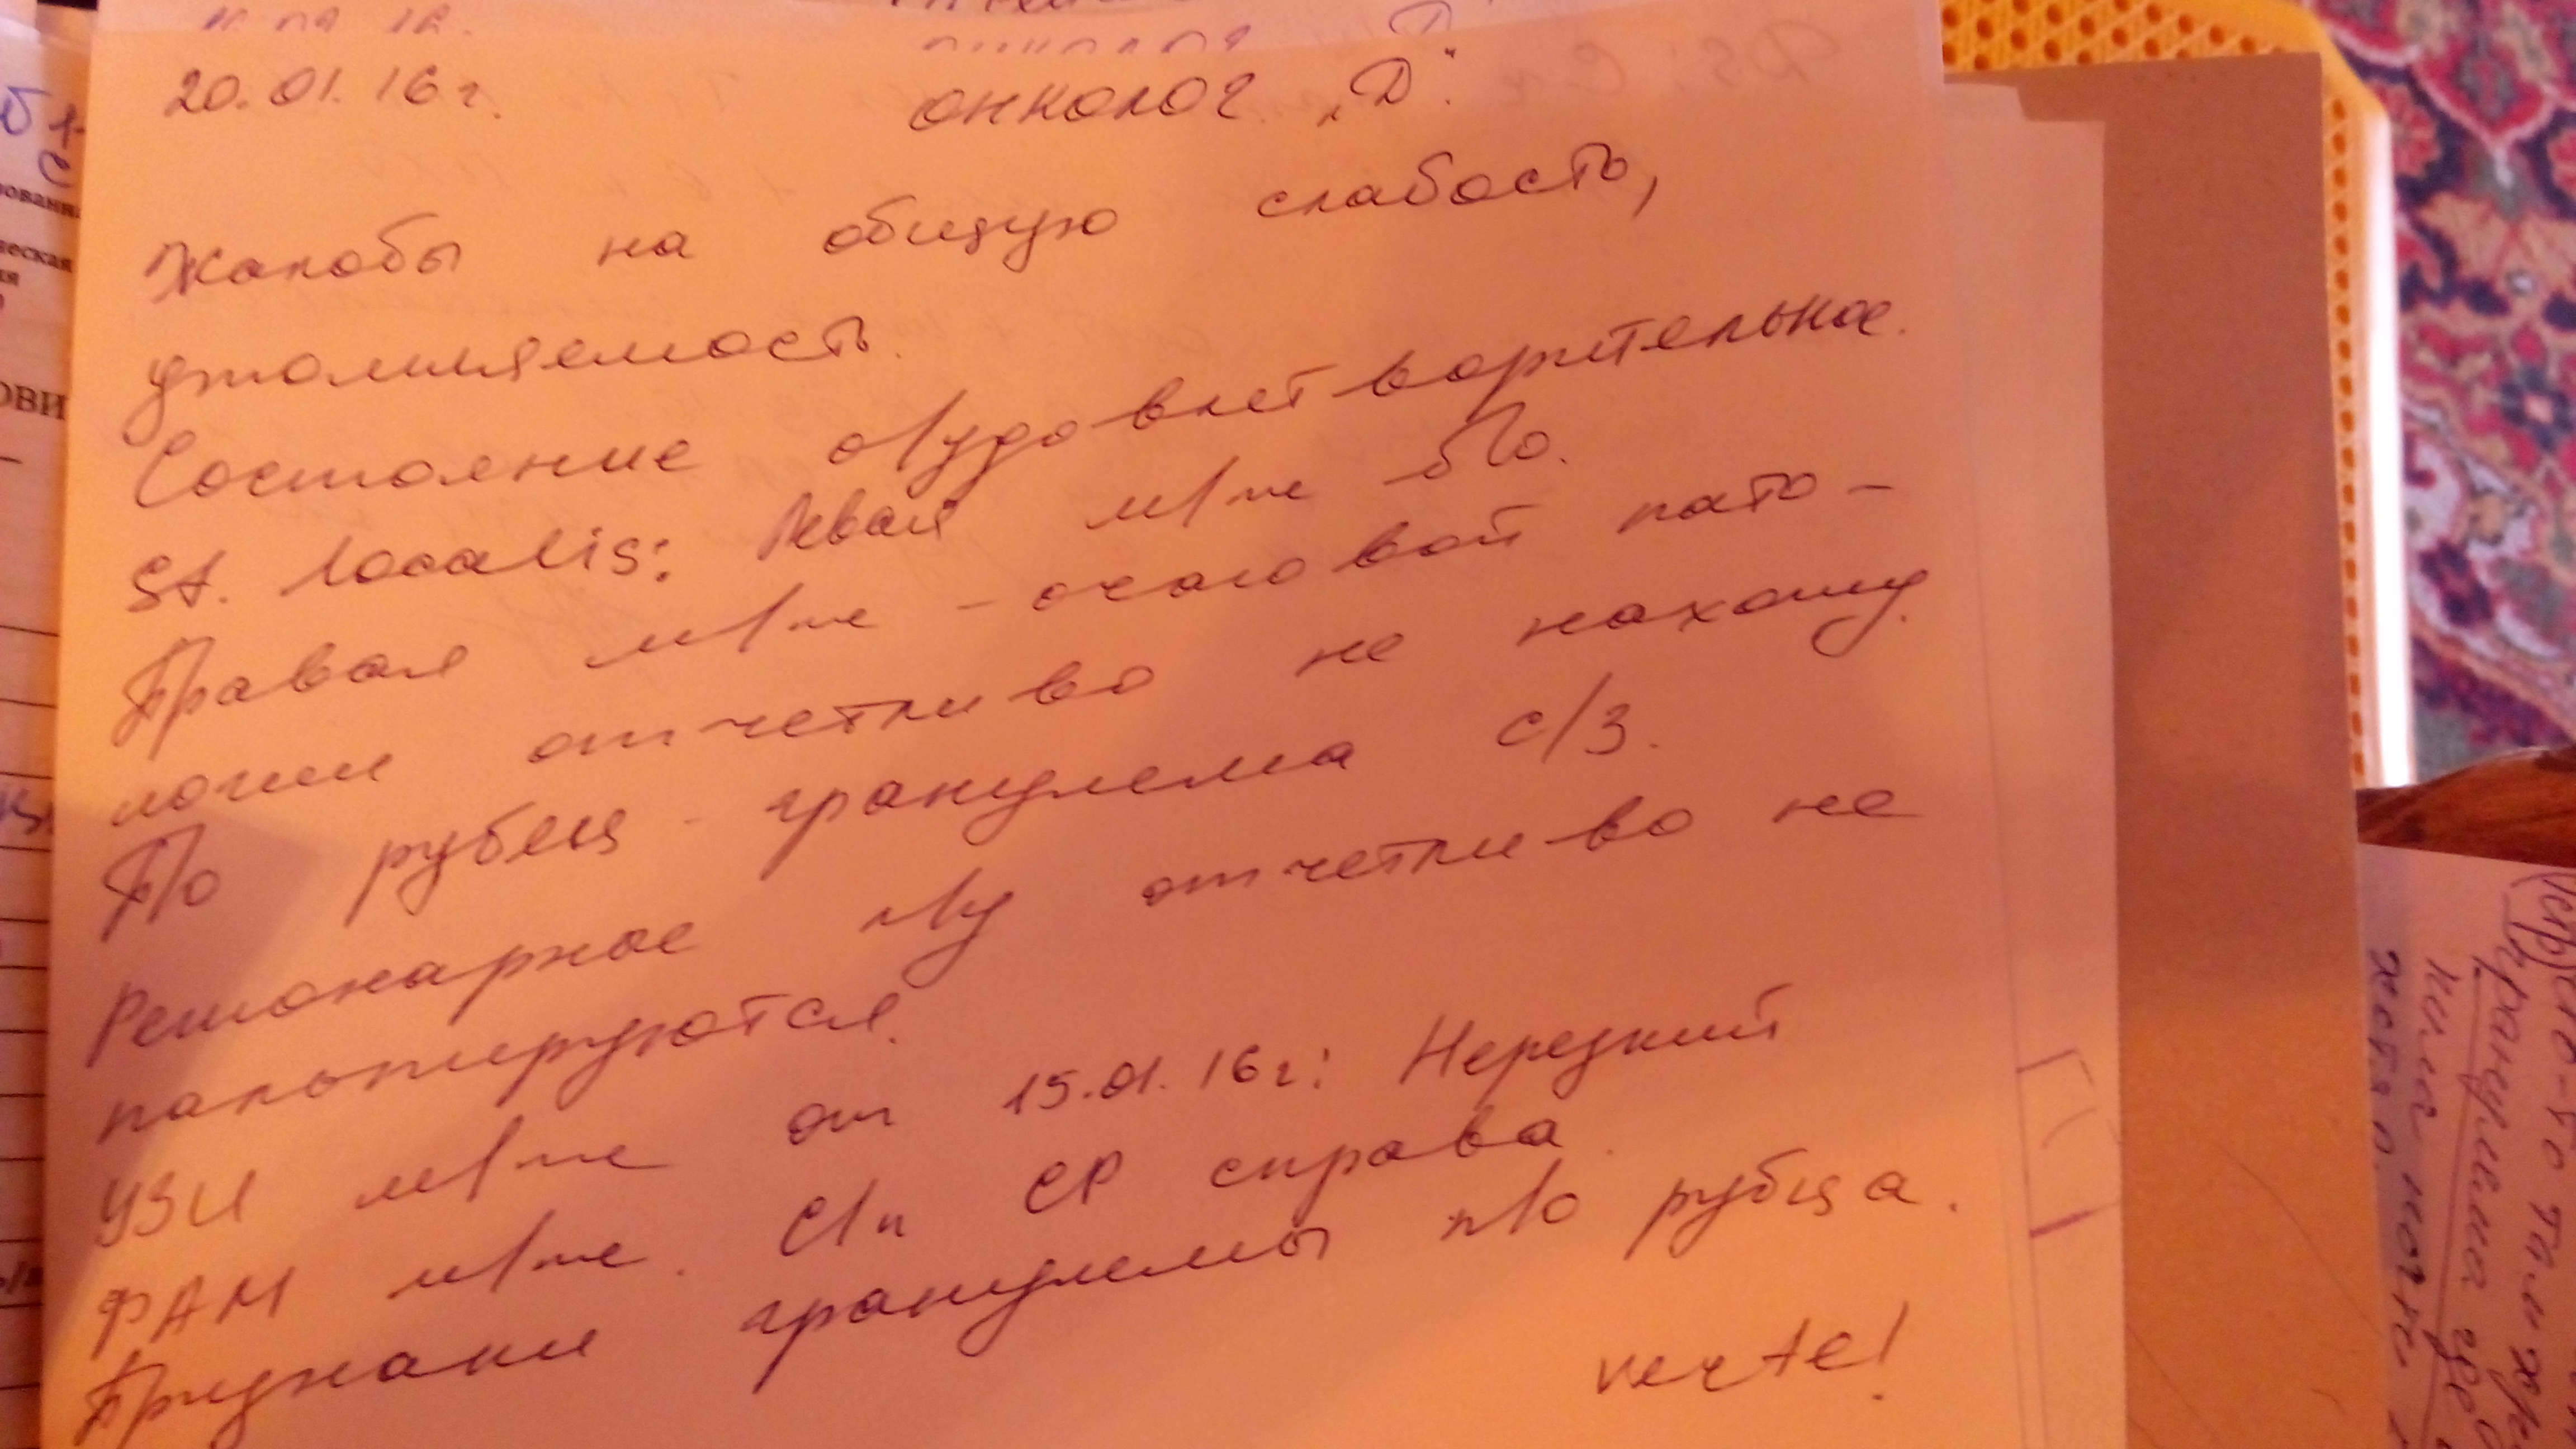 20.01.16г. онколог „Д".
Жалобы на общую слабость,
утомляемость.
Состояние о/удовлетворительное.
St. localis: Левая м/ж б/о.
Правая м/ж - очаговой пато-
логии отчетливо не нахожу.
П/о рубец - гранулема с/з.
Регионарное л/у отчетливо не
пальпируются.
УЗИ м/ж от 15.01.16г: Нерезкий
ФАМ м/ж. С/п СР справа.
Признаки гранулемы п/о рубца.
verte!
гранулема